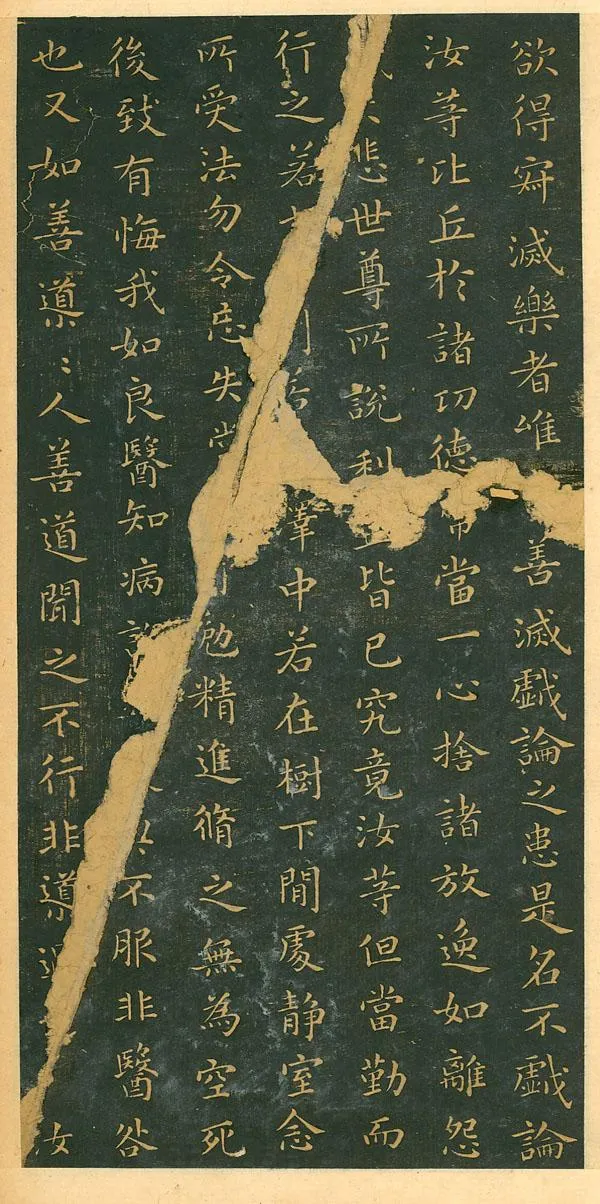 欲得寂滅樂者唯善滅戲論之患是名不戲論
汝等比丘於諸功德常當一心捨諸放逸如離怨
悲世尊所說利皆已究竟汝等但當勤而
行之若中若在樹下閒處靜室念
所受法勿令忘失勉精進脩之無為空死
後致有悔我如良醫知病不服非醫咎
也又如善導〻人善道聞之不行非導過汝